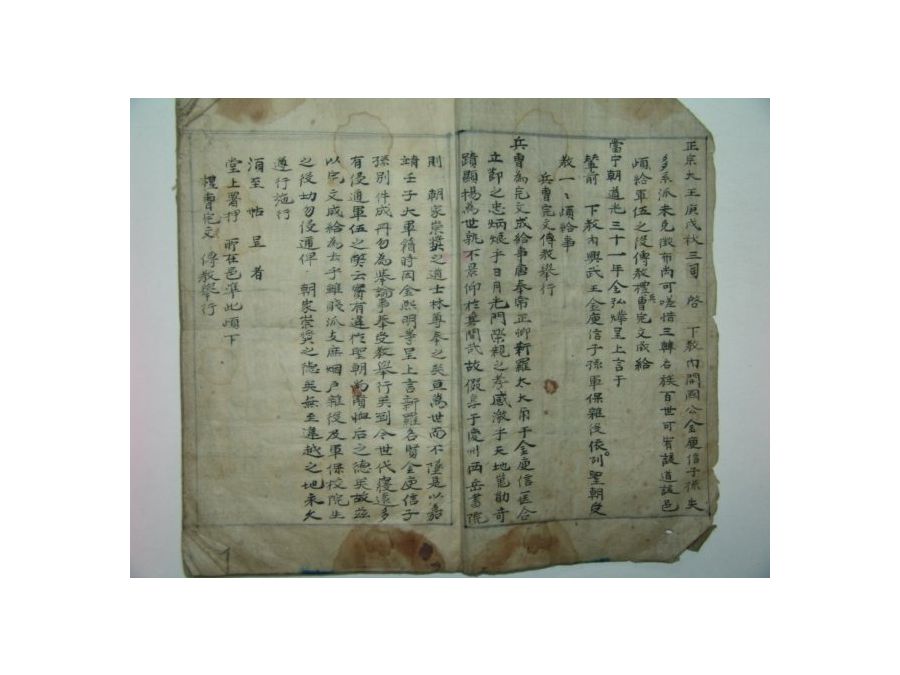 正宗大王庚戌秋三司 啓 下敎內開國公金庾信子孫矣
多系派未免徵布尚可嗟惜三韓名族百世可宥該道該邑
頉給軍伍之役傳敎禮兵曹完文成給
當宁朝道光三十一年金弘燁呈上言于
輦前 下敎內興武王金庾信子孫軍保雜役依列聖朝受
敎一一頉給事
兵曹完文傳敎擧行
兵曹爲完文成給事唐奉常正卿新羅太大角干金庾信匡合
立節之忠炳烺乎日月光門榮親之孝感激乎天地嵬勛奇
蹟顯揚爲世孰不景仰於其間哉故俎豆于慶州西岳書院
則 朝家崇奬之道士林尊奉之矣亘萬世而不墜是以嘉
靖壬子大軍籍時因金熙明等呈上言新羅名賢金庾信子
孫別件成冊勿爲擧論事奉受敎擧行矣到今世代寢遠多
有侵通軍伍之弊云實有違於聖朝尚賢恤后之德矣故玆
以完文成給爲去乎雖賤派支庶烟戶雜役及軍保校院生
之役幼勿侵通俾 朝家崇奬之德矣無至違越之地永久
遵行施行
湏至帖呈者
堂上署押 所在邑準此頉下
禮曹完文 傳敎擧行